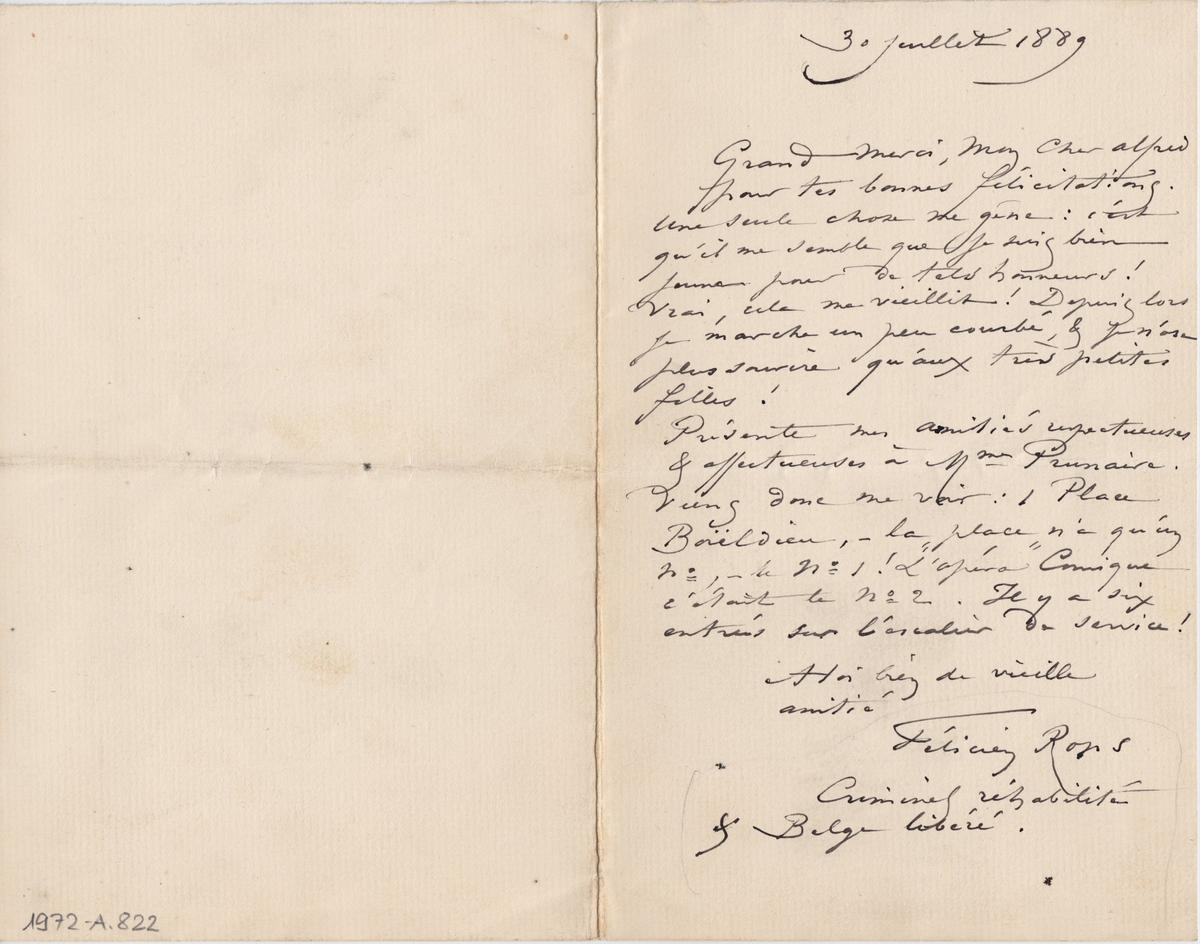 30 juillet 1889
Grand merci, Mon Cher alfred
pour tes bonnes félicitations.
Une seule chose me gêne : c'est
qu'il me semble que je suis bien
jeune pour de tels honneurs !
Vrai, cela me vieillit ! Depuis lors
je marche un peu courbé, & je n'ose
plus sourire qu'aux très petites
filles !
Présente mes amitiés respectueuses
& affectueuses à Mme Prunaire.
Viens donc me voir : 1 Place
Boïeldieu, – la "place" n'a qu'un
No, – le No 1 ! L'opéra Comique
c'était le No 2. Il y a six
entrées sur l'escalier de service !
A toi bien de vieille
amitié
Félicien Rops
Criminel réhabilité
& Belge libéré.
1972-A.822